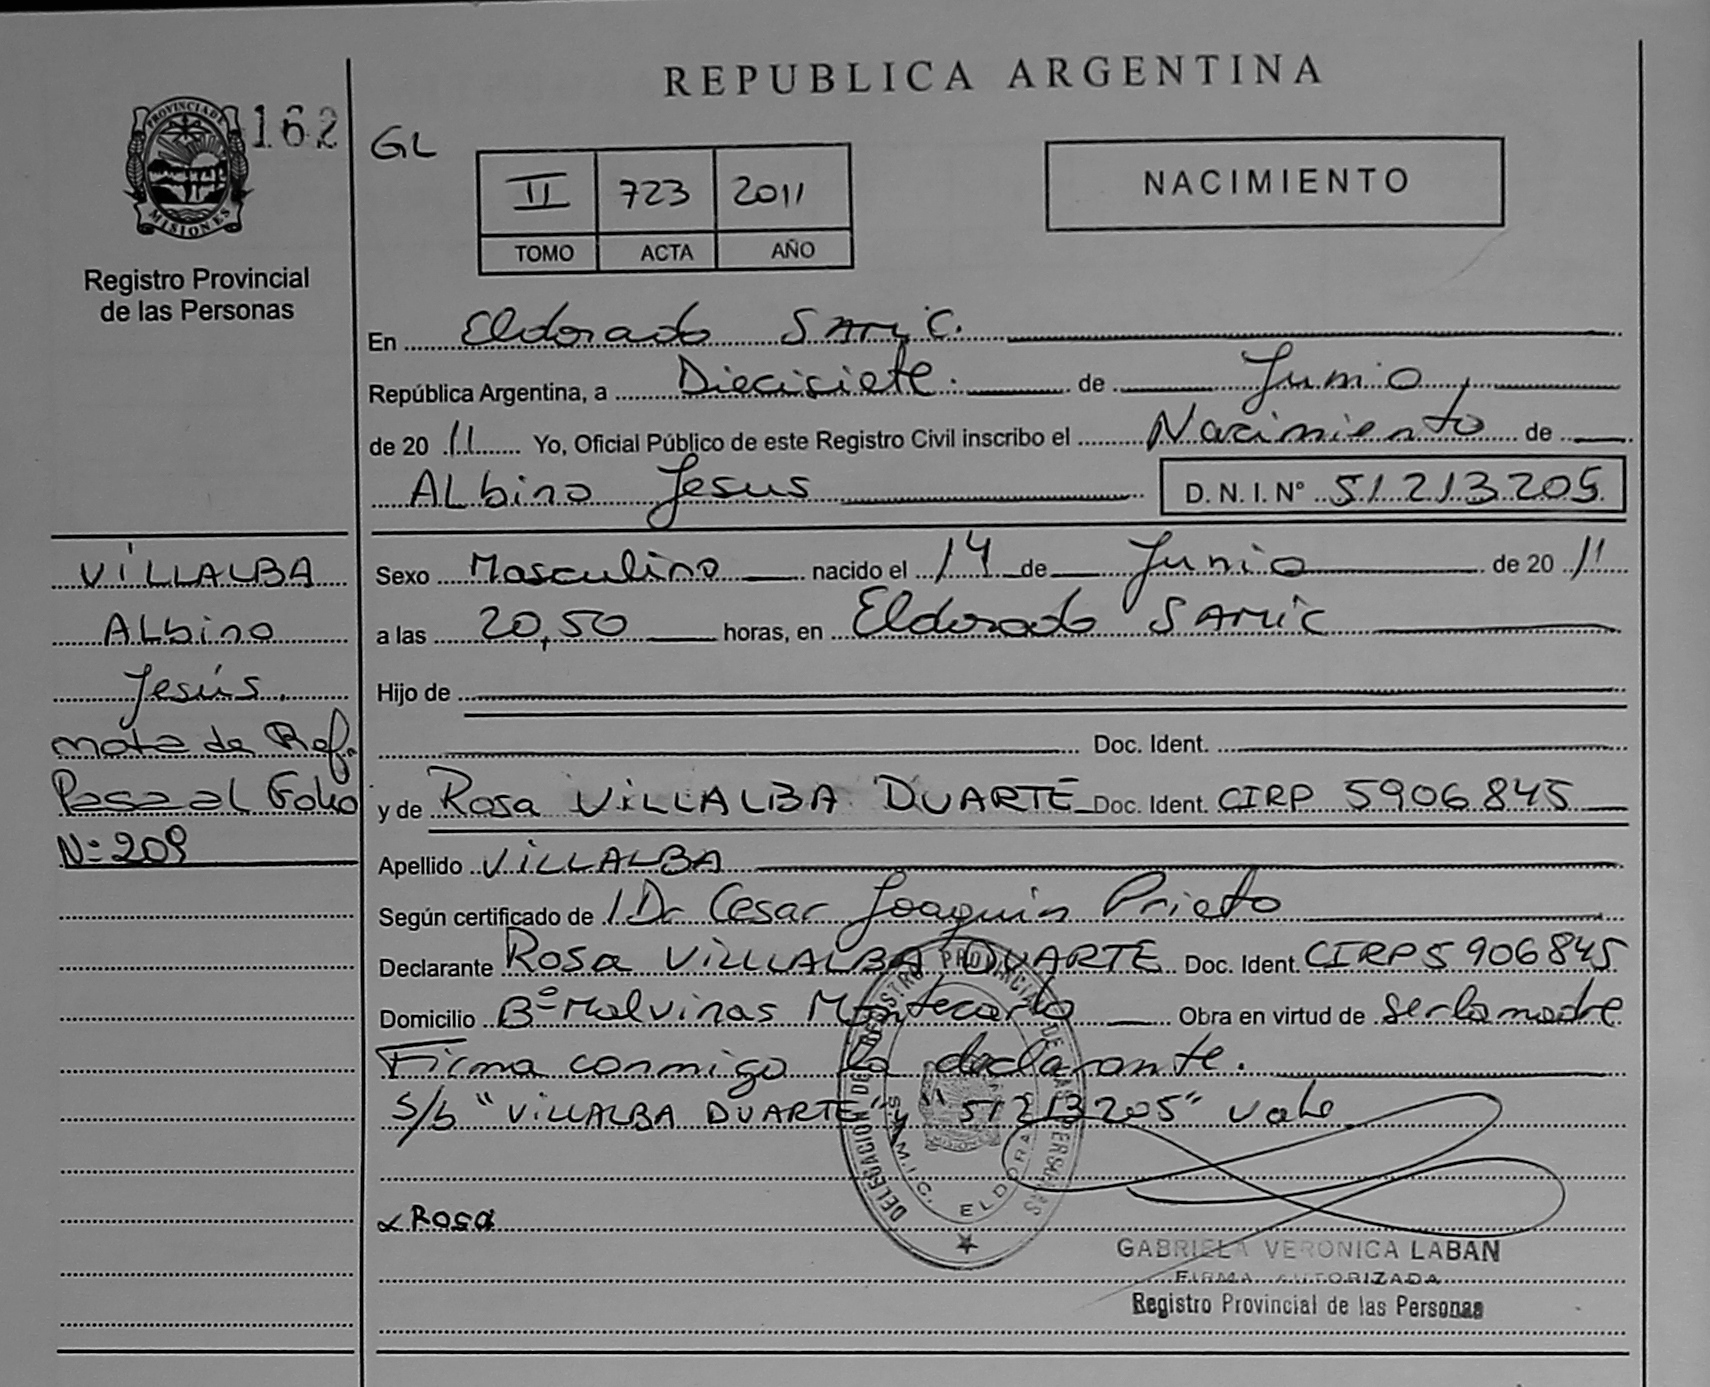 REPUBLICA ARGENTINA
PROVINCIA DE
MISIONES
162
Registro Provincial
de las Personas
GL
II 723 2011
TOMO ACTA AÑO
NACIMIENTO
En Eldorado SAMIC.
República Argentina, a Diecisiete. de Junio
de 2011 Yo, Oficial Público de este Registro Civil inscribo el Nacimiento de
ALbino Jesus D. N. I. Nº 51213205
VILLALBA
ALbino
Jesús.
nota de Ref.
Pasa al Folio
Nº 209
Sexo Masculino nacido el 14 de Junio de 2011
a las 20,50 horas, en Eldorado SAMIC
Hijo de
Doc. Ident.
y de Rosa VILLALBA DUARTE Doc. Ident. CIRP 5906845
Apellido VILLALBA
Según certificado de Dr Cesar Joaquin Prieto
Declarante ROSA VILLLALBA DUARTE Doc. Ident. CIRP 5906845
Domicilio Bº Malvinas Montecarlo Obra en virtud de ser la madre
Firma conmigo la declarante.
S/b "VILLALBA DUARTE" y "51213205" vale
Rosa
DELEGACION DEL REGISTRO PROVINCIAL DE LAS PERSONAS
S.A.M.I.C. ELDORADO
GABRIELA VERONICA LABAN
FIRMA AUTORIZADA
Registro Provincial de las Personas